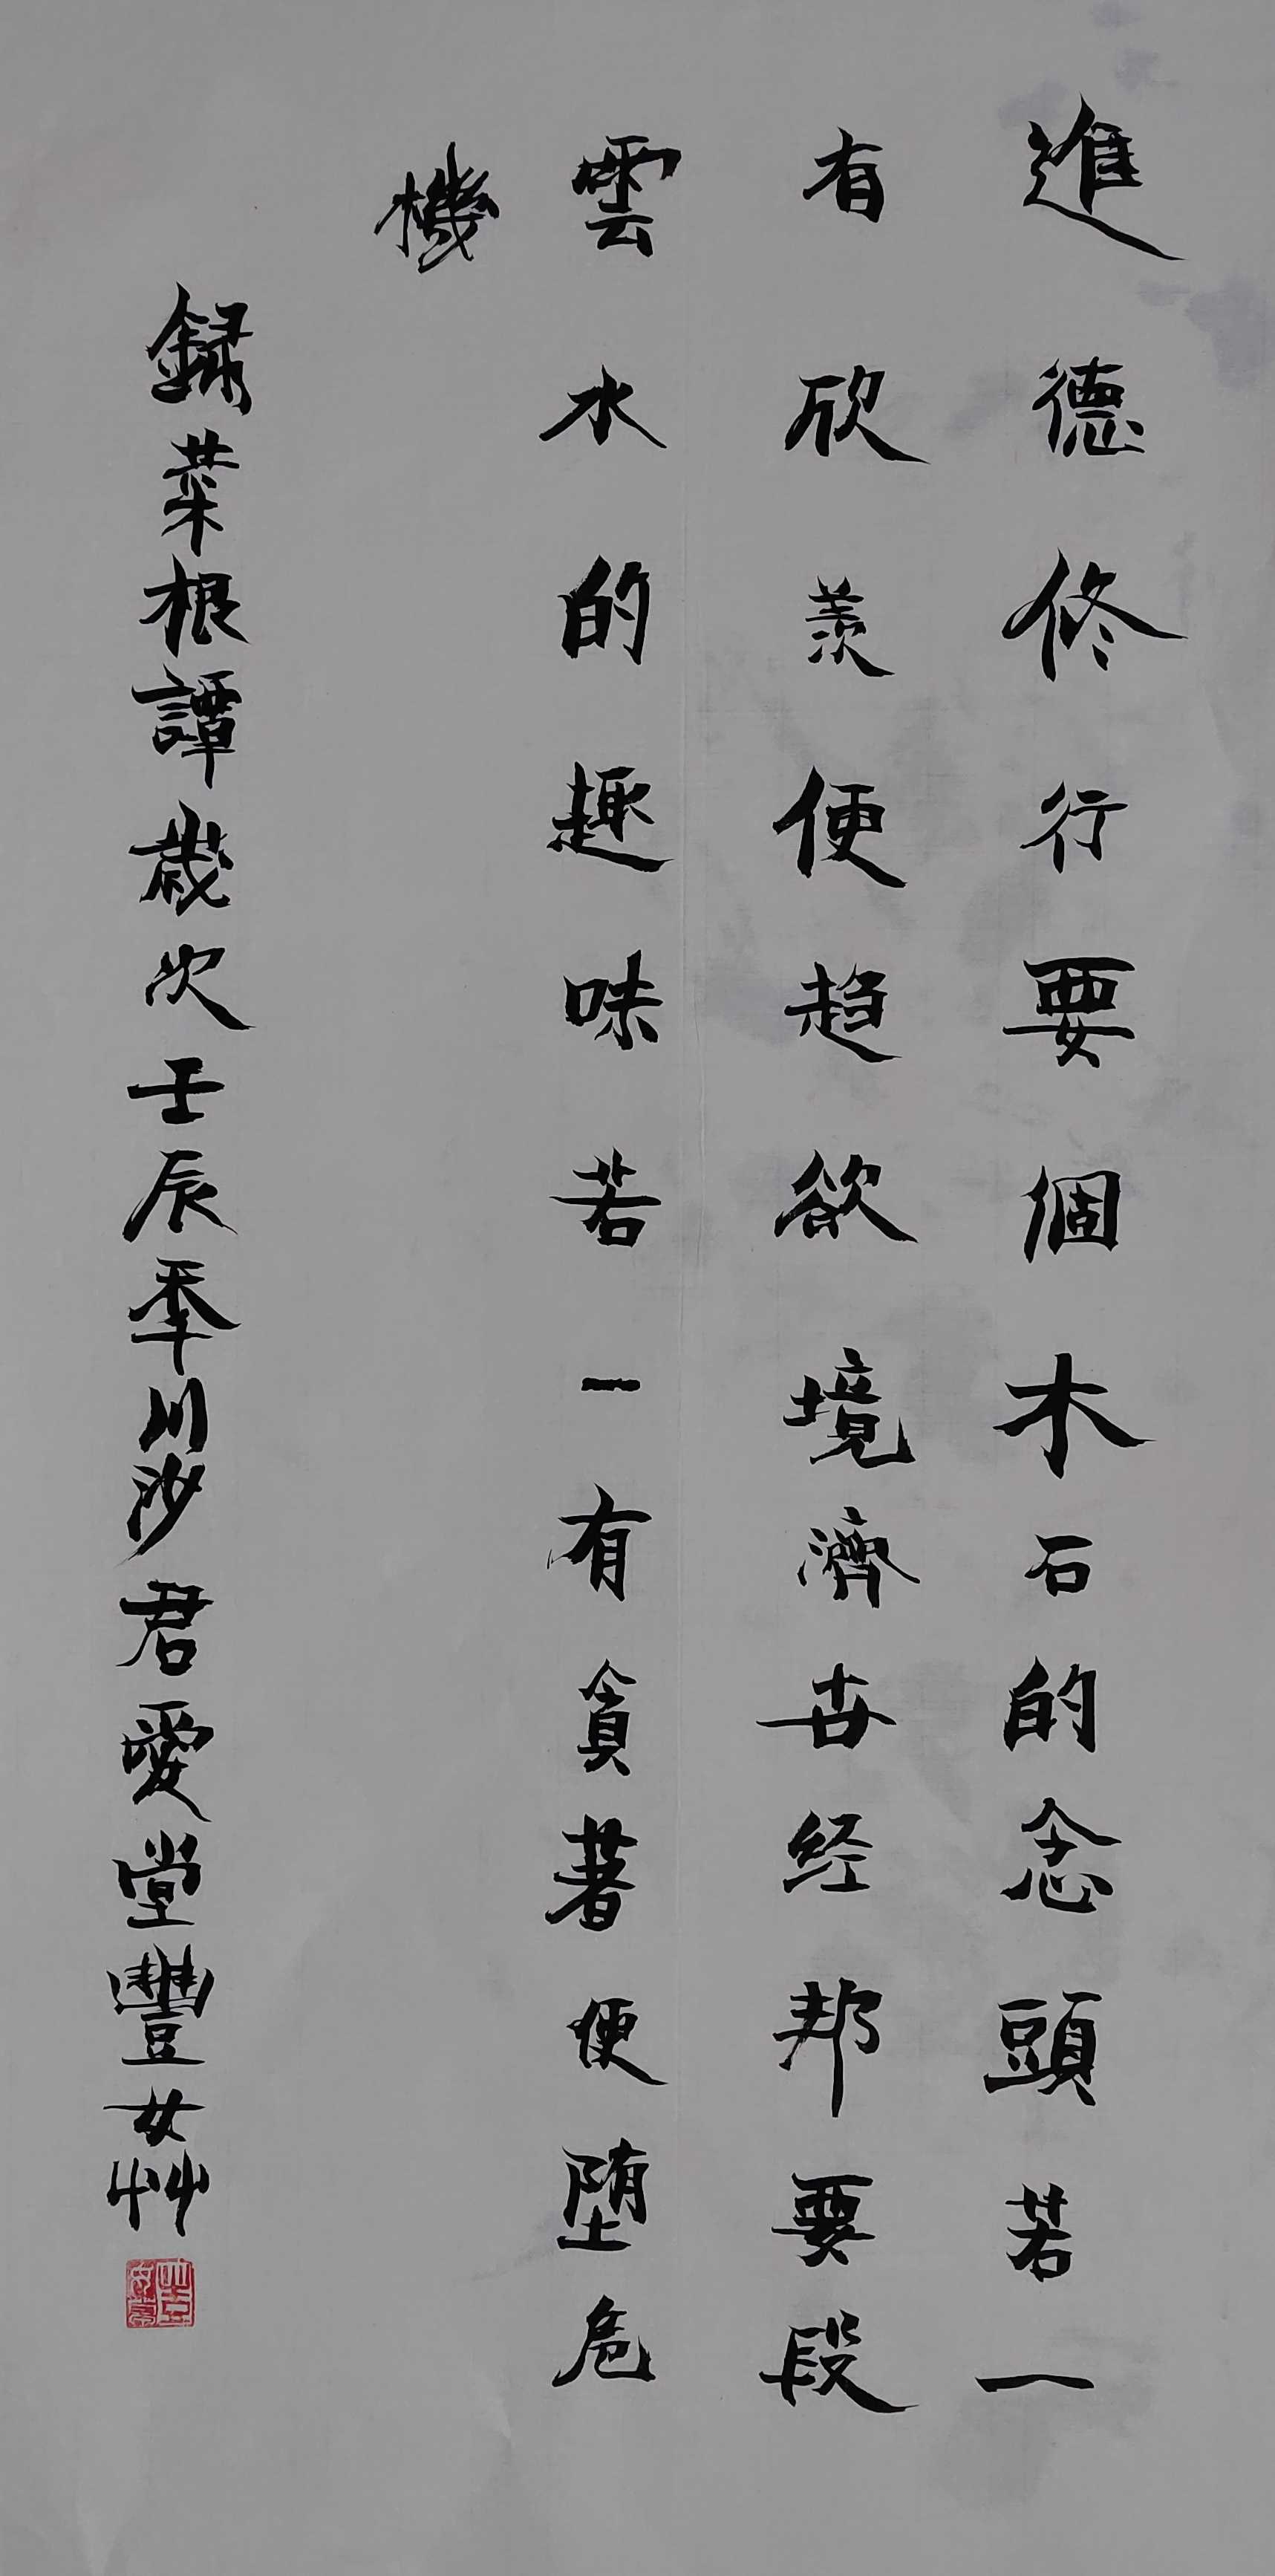 進德修行要個木石的念頭若一
有欣羨便趋欲境濟世经邦要段
雲水的趣味若一有貪著便堕危
機
録菜根譚歲次壬辰季川沙君愛堂豐女艸